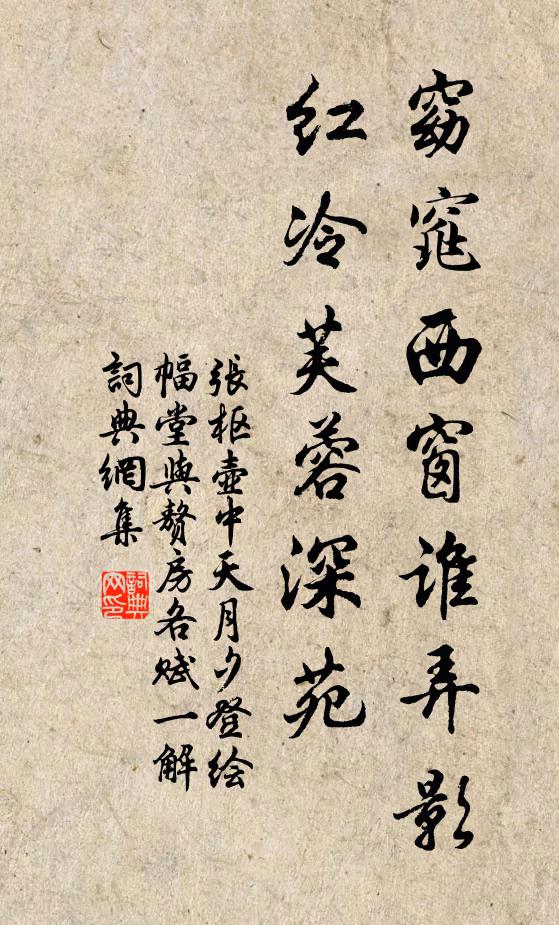 窈窕西窗誰弄影
红冷芙蓉深苑
張枢壺中天月夕登绘
幅堂與贅房各赋一解
詞典網集
詞典
网印